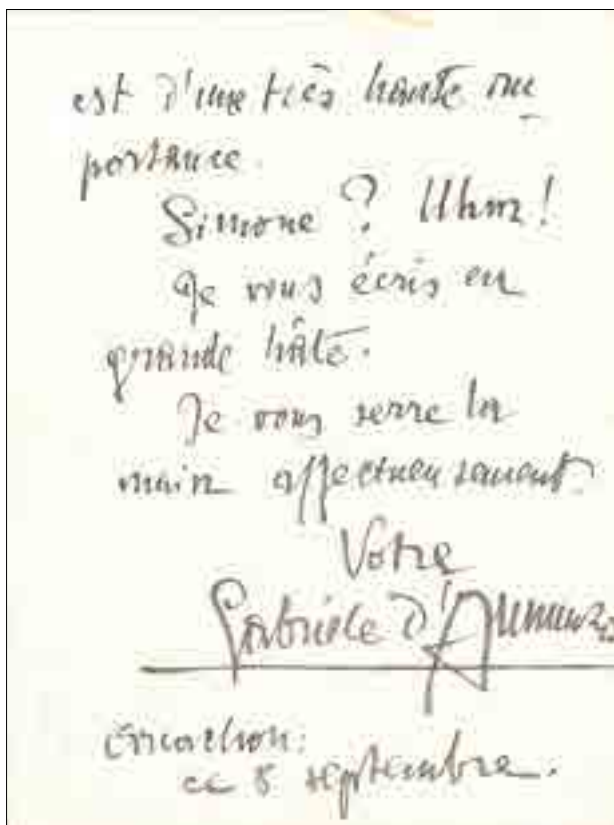 est d'une très haute im
portance.
Simone ? Uhm!
Je vous écris en
grande hâte.
Je vous serre la
main affectueusement.
Votre
Gabriele d'Annunzio
Arcachon:
ce 8 septembre.